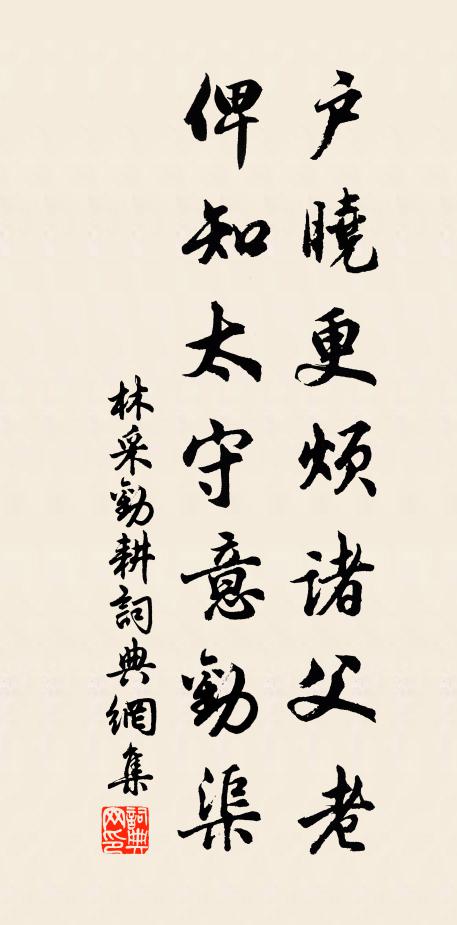 户曉更煩諸父老
俾知太守意勤渠
林采勸耕詞典網集
詞典网印